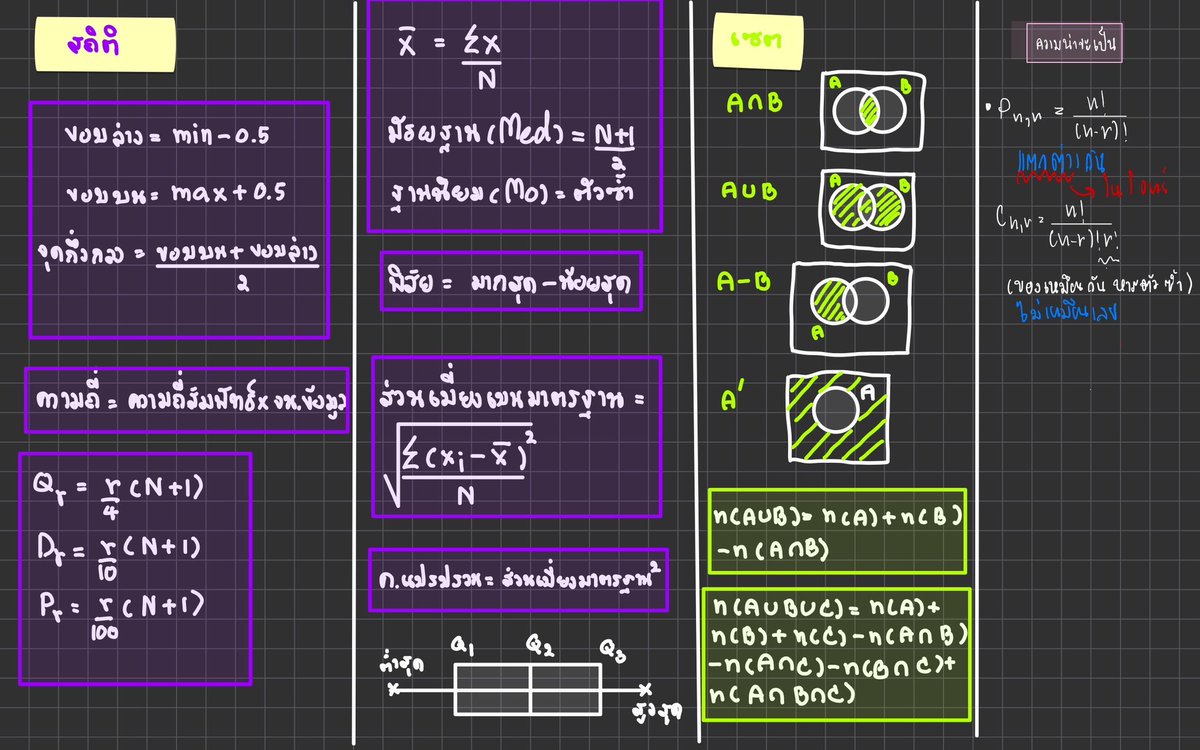 สถิติ
ขอบล่าง = min - 0.5
ขอบบน = max + 0.5
จุดกึ่งกลาง = ขอบบน + ขอบล่าง
2
ความถี่ = ความถี่สัมพัทธ์ x จน.ข้อมูล
Qr = r/4 (N+1)
Dr = r/10 (N+1)
Pr = r/100 (N+1)
x̄ = Σx
N
มัธยฐาน (Med) = N+1
2
ฐานนิยม (Mo) = ตัวซ้ำ
พิสัย = มากสุด - น้อยสุด
ส่วนเบี่ยงเบนมาตรฐาน =
√Σ(xi - x̄)²
N
ค.แปรปรวน = ส่วนเบี่ยงมาตรฐาน²
Q1 Q2 Q3
ต่ำสุด
สูงสุด
เซต
A∩B
A B
A∪B
A B
A-B
B
A
A'
A
n(A∪B) = n(A) + n(B)
- n(A∩B)
n(A∪B∪C) = n(A) +
n(B) + n(C) - n(A∩B)
- n(A∩C) - n(B∩C) +
n(A∩B∩C)
ความน่าจะเป็น
• Pn,n = n!
(n-r)!
แตกต่างกัน
Cn,r = n!
(n-r)!r!
(ของเหมือนกัน หารตัวซ้ำ)
ไม่เหมือนเลย